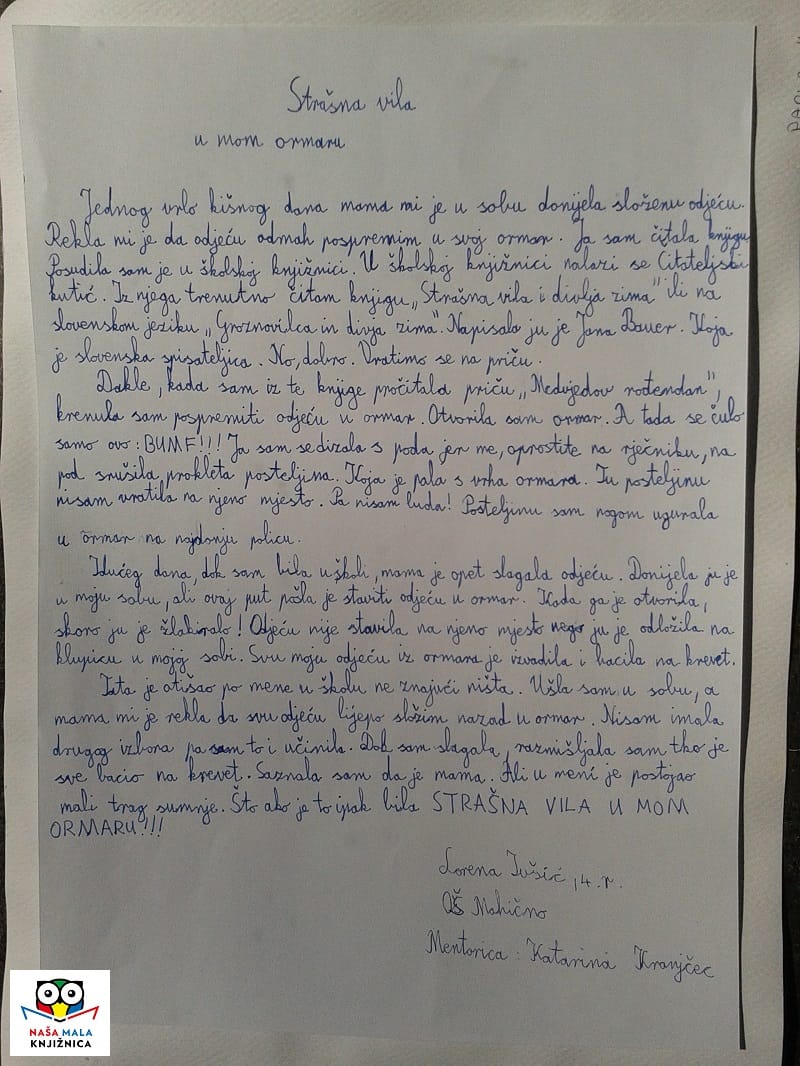 Strašna vila
u mom ormaru
Jednog vrlo kišnog dana mama mi je u sobu donijela složenu odjeću.
Rekla mi je da odjeću odmah pospremim u svoj ormar. Ja sam čitala knjigu
Posudila sam je u školskoj knjižnici. U školskoj knjižnici nalazi se Čitateljski
kutić. Iz njega trenutno čitam knjigu „Strašna vila i divlja zima" ili na
slovenskom jeziku „Groznovilca in divja zima". Napisala ju je Jana Bauer. Koja
je slovenska spisateljica. No, dobro. Vratimo se na priču.
Dakle, kada sam iz te knjige pročitala priču „Medvjedov rođendan",
krenula sam pospremiti odjeću u ormar. Otvorila sam ormar. A tada se čulo
samo ovo: BUMF!!! Ja sam se dizala s poda jer me, oprostite na rječniku, na
pod srušila prokleta posteljina. Koja je pala s vrha ormara. Tu posteljinu
nisam vratila na njeno mjesto. Pa nisam luda! Posteljinu sam nogom ugurala
u ormar na najdonju policu.
Idućeg dana, dok sam bila u školi, mama je opet slagala odjeću. Donijela ju je
u moju sobu, ali ovaj put pošla je staviti odjeću u ormar. Kada ga je otvorila,
skoro ju je žlakiralo! Odjeću nije stavila na njeno mjesto nego ju je odložila na
klupicu u mojoj sobi. Svu moju odjeću iz ormara je izvadila i bacila na krevet.
Tata je otišao po mene u školu ne znajući ništa. Ušla sam u sobu, a
mama mi je rekla da svu odjeću lijepo složim nazad u ormar. Nisam imala
drugog izbora pa sam to i učinila. Dok sam slagala, razmišljala sam tko je
sve bacio na krevet. Saznala sam da je mama. Ali u meni je postojao
mali trag sumnje. Što ako je to ipak bila STRAŠNA VILA U MOM
ORMARU!!!
Lorena Ivšić, 4. r.
OŠ Mahično
Mentorica: Katarina Kranjčec
NAŠA MALA
KNJIŽNICA